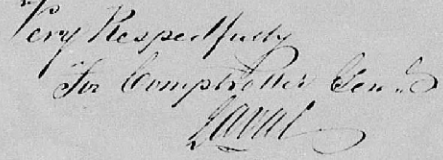 Very Respectfully
For Comptroller Genl.